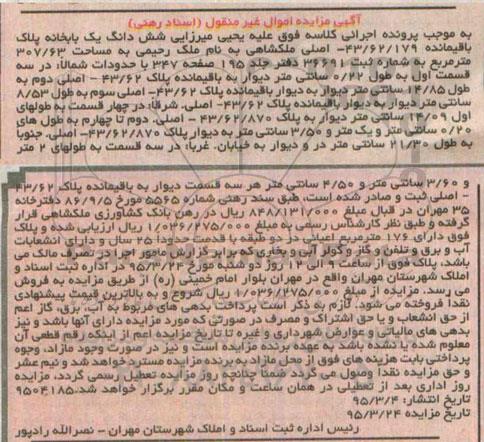 آگهی مزایده اموال غیر منقول (اسناد رهنی)
به موجب پرونده اجرائی کلاسه فوق علیه یحیی میرزایی شش دانگ یک بابخانه پلاک
باقیمانده ۴۳/۶۲/۱۷۹- اصلی ملکشاهی به نام ملک رحیمی به مساحت ۳۰۷/۶۳
مترمربع به شماره ثبت ۳۶۶۹۱ دفتر جلد ۱۹۵ صفحه ۳۴۷ با حدودات شمالا: در سه
قسمت اول به طول ۰/۲۲ سانتی متر دیوار به باقیمانده پلاک ۴۳/۶۲ - اصلی دوم به
طول ۱۴/۸۵ سانتی متر دیوار به دیوار باقیمانده پلاک ۴۳/۶۲- اصلی سوم به طول ۸/۵۳
سانتی متر دیوار به دیوار باقیمانده پلاک ۴۳/۶۲- اصلی. شرقا: در چهار قسمت به طولهای
اول ۱۴/۰۹ سانتی متر دیوار به دیوار پلاک ۴۳/۶۲/۸۷۰ - اصلی. دوم تا چهارم به طول های
۰/۲۰ سانتی متر و یک متر و ۳/۵۰ سانتی متر به دیوار پلاک ۴۳/۶۲/۸۷۰- اصلی. جنوبا
به طول ۲۱/۳۰ سانتی متر در و دیوار به خیابان. غربا: در سه قسمت به طولهای ۲ متر
و ۳/۶۰ سانتی متر و ۴/۵۰ سانتی متر هر سه قسمت دیوار به باقیمانده پلاک ۴۳/۶۲
- اصلی ثبت و صادر شده است، طبق سند رهنی شماره ۵۵۶۵ مورخ ۸۶/۹/۵ دفترخانه
۳۵ مهران در قبال مبلغ ۸۴۸/۱۳۱/۰۰۰ ریال در رهن بانک کشاورزی ملکشاهی قرار
گرفته و طبق نظر کارشناس رسمی به مبلغ ۱/۰۳۶/۲۷۵/۰۰۰ ریال ارزیابی شده و پلاک
فوق دارای ۱۷۶ مترمربع اعیانی در دو طبقه با قدمت حدودا ۲۵ سال و دارای انشعابات
آب و برق و تلفن و گاز و کولر آبی و بخاری که برابر گزارش مامور اجرا در تصرف مالک می
باشد، پلاک فوق از ساعت ۹ الی ۱۲ روز دو شنبه مورخ ۹۵/۳/۲۴ در اداره ثبت اسناد و
املاک شهرستان مهران واقع در مهران بلوار امام خمینی (ره) از طریق مزایده به فروش
می رسد. مزایده از مبلغ ۱/۰۳۶/۲۷۵/۰۰۰ ریال شروع و به بالاترین قیمت پیشنهادی
نقدا فروخته می شود. لازم به ذکر است پرداخت بدهی های مربوط به آب، برق، گاز اعم
از حق انشعاب و یا حق اشتراک و مصرف در صورتی که مورد مزایده دارای آنها باشد و نیز
بدهی های مالیاتی و عوارض شهرداری و غیره تا تاریخ مزایده اعم از اینکه رقم قطعی آن
معلوم شده یا نشده باشد به عهده برنده مزایده است و نیز در صورت وجود مازاد، وجوه
پرداختی بابت هزینه های فوق از محل مازاد به برنده مزایده مسترد خواهد شد و نیم عشر
و حق مزایده نقدا وصول می گردد ضمنا چنانچه روز مزایده تعطیل رسمی گردد، مزایده
روز اداری بعد از تعطیلی در همان ساعت و مکان مقرر برگزار خواهد شد.۹۵۰۴۱۸۵
تاریخ انتشار: ۹۵/۳/۴
تاریخ مزایده ۹۵/۳/۲۴
رئیس اداره ثبت اسناد و املاک شهرستان مهران - نصرالله رادپور